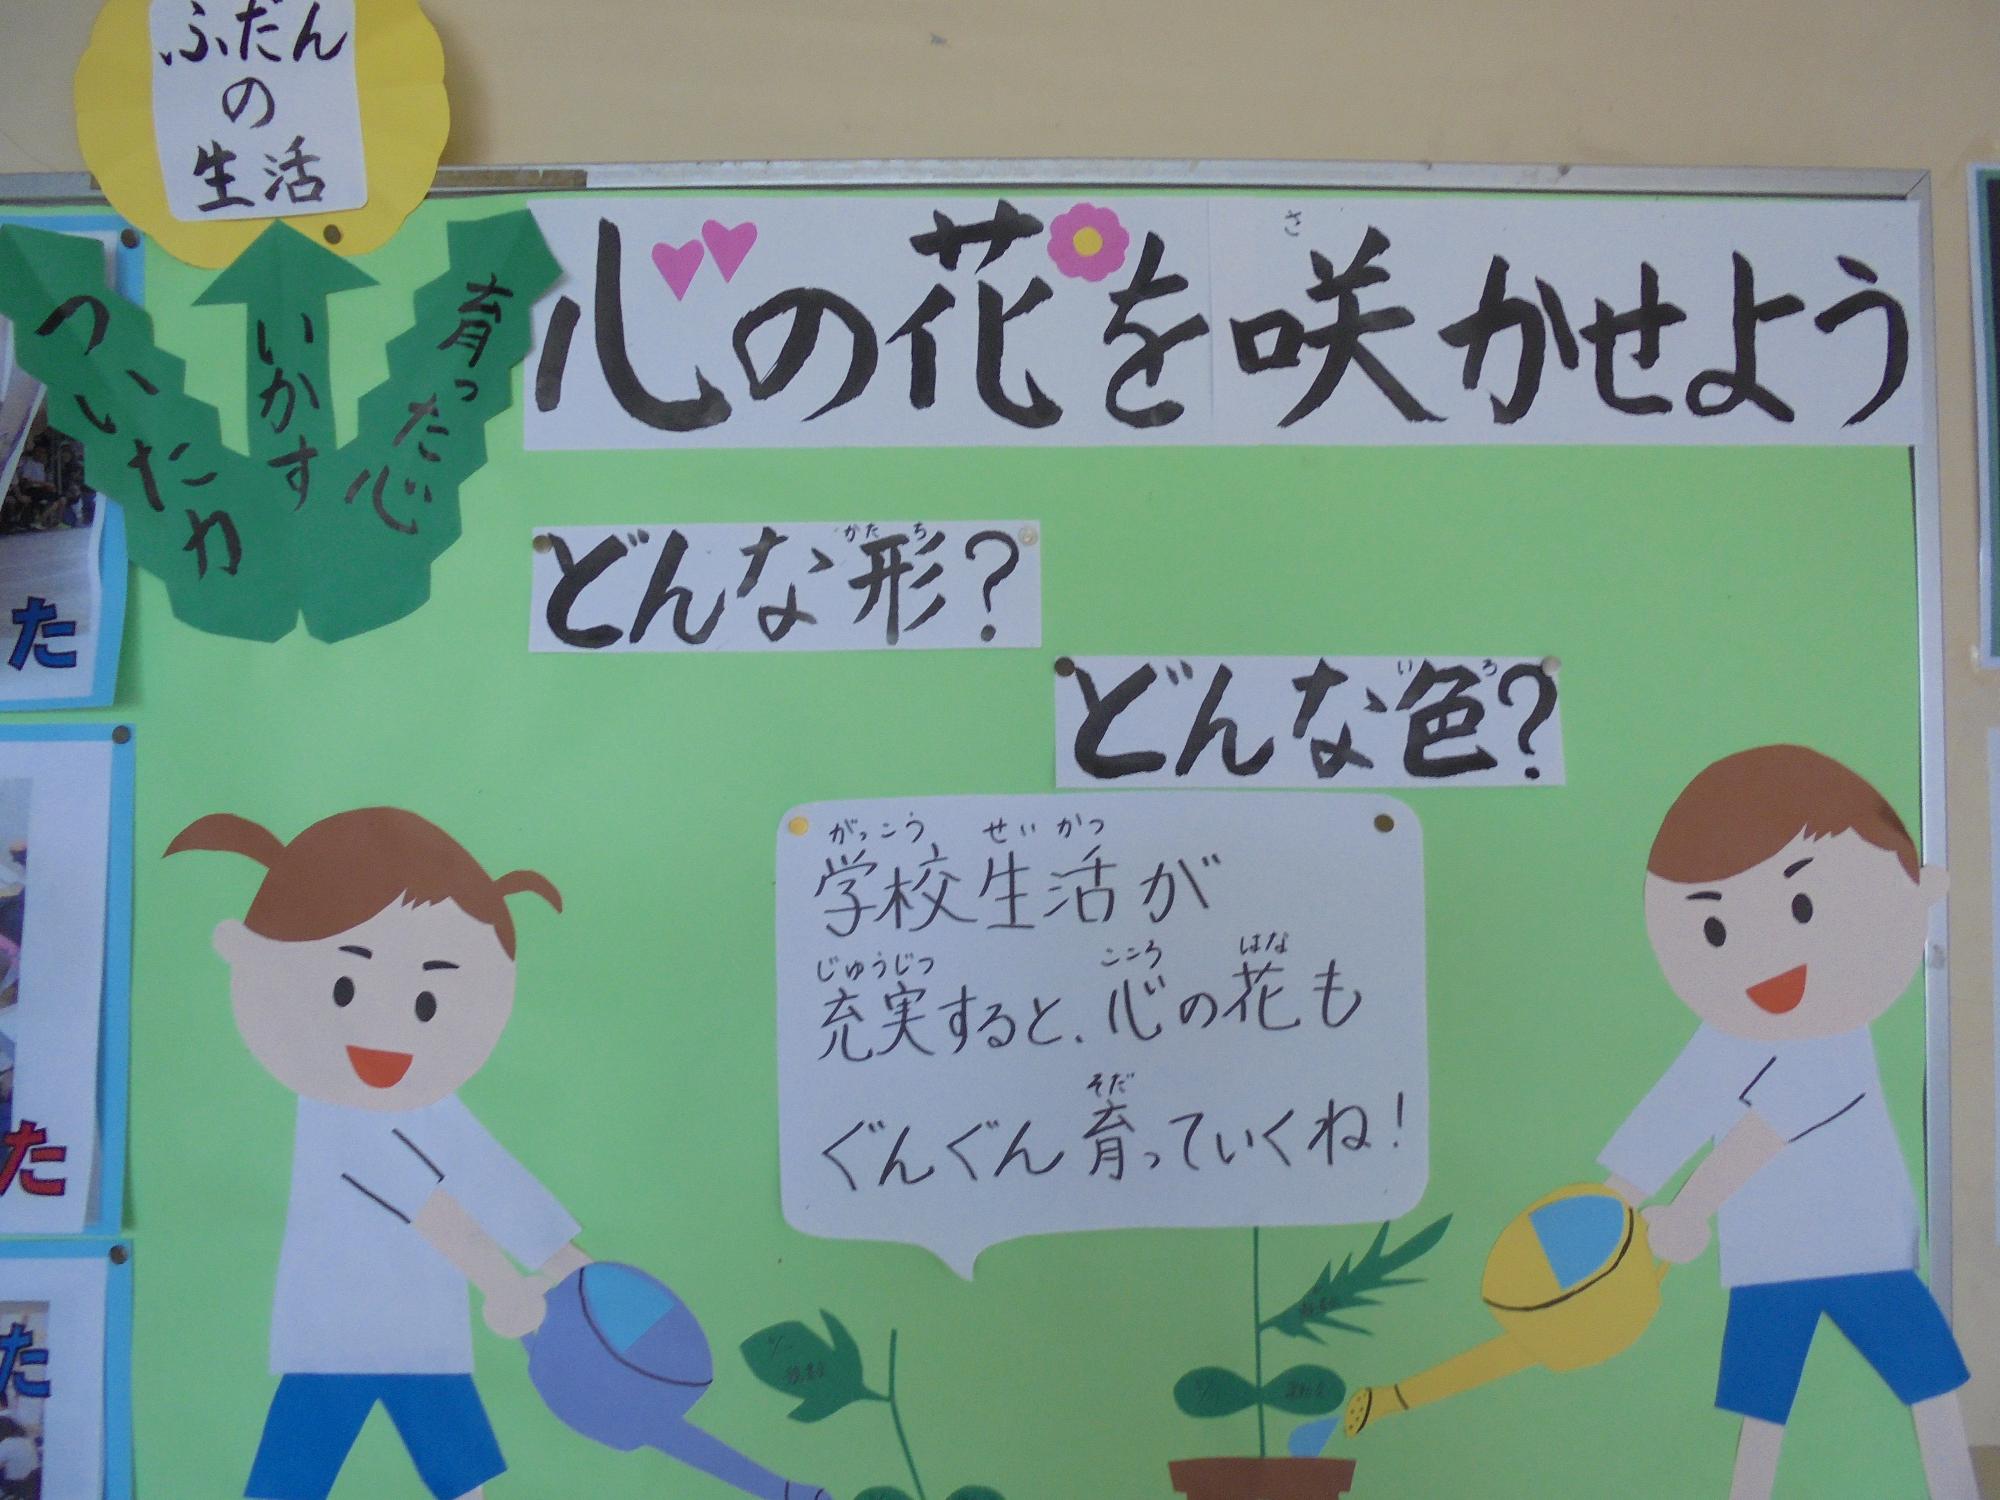 ふだん
の
生活
ついた力
いかす
育った心
心の花を咲かせよう
さ
どんな形？
かたち
どんな色？
いろ
がっこう せいかつ
学校生活が
じゅうじつ こころ はな
充実すると、心の花も
そだ
ぐんぐん育っていくね！
た
た
た